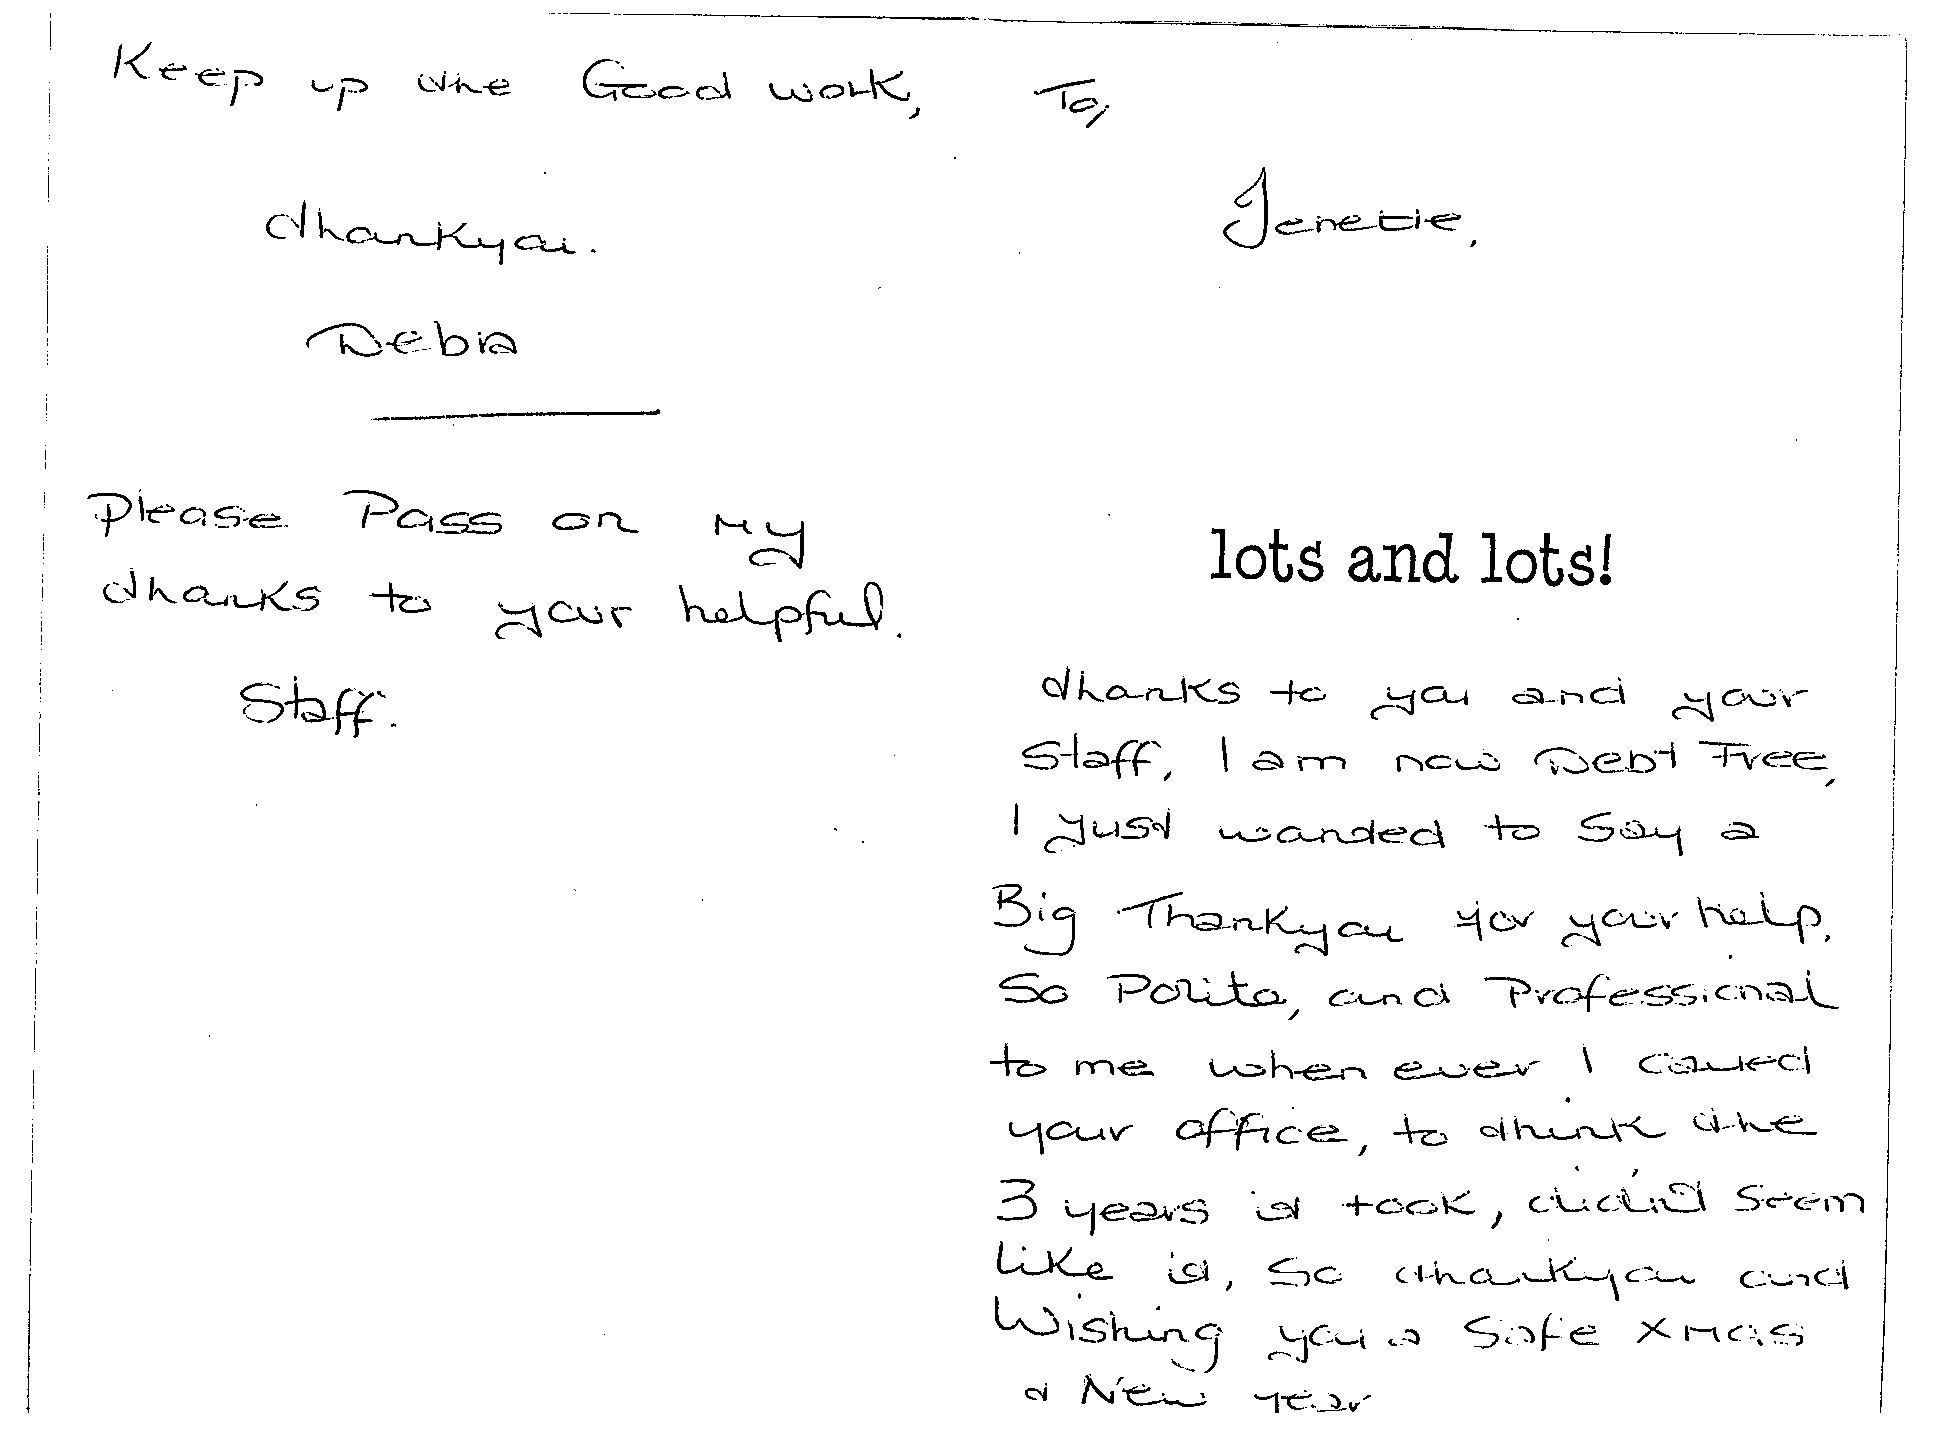 Keep up the Good work,
thankyou.
Debra
Please Pass on my
thanks to your helpful.
Staff.
To,
Jenette,
lots and lots!
thanks to you and your
Staff, I am now Debt Free,
I just wanted to say a
Big Thankyou for your help.
So Polite, and Professional
to me when ever I called
your office, to think the
3 years it took, didn't seem
like it, So thankyou and
Wishing you a Safe Xmas
& New year